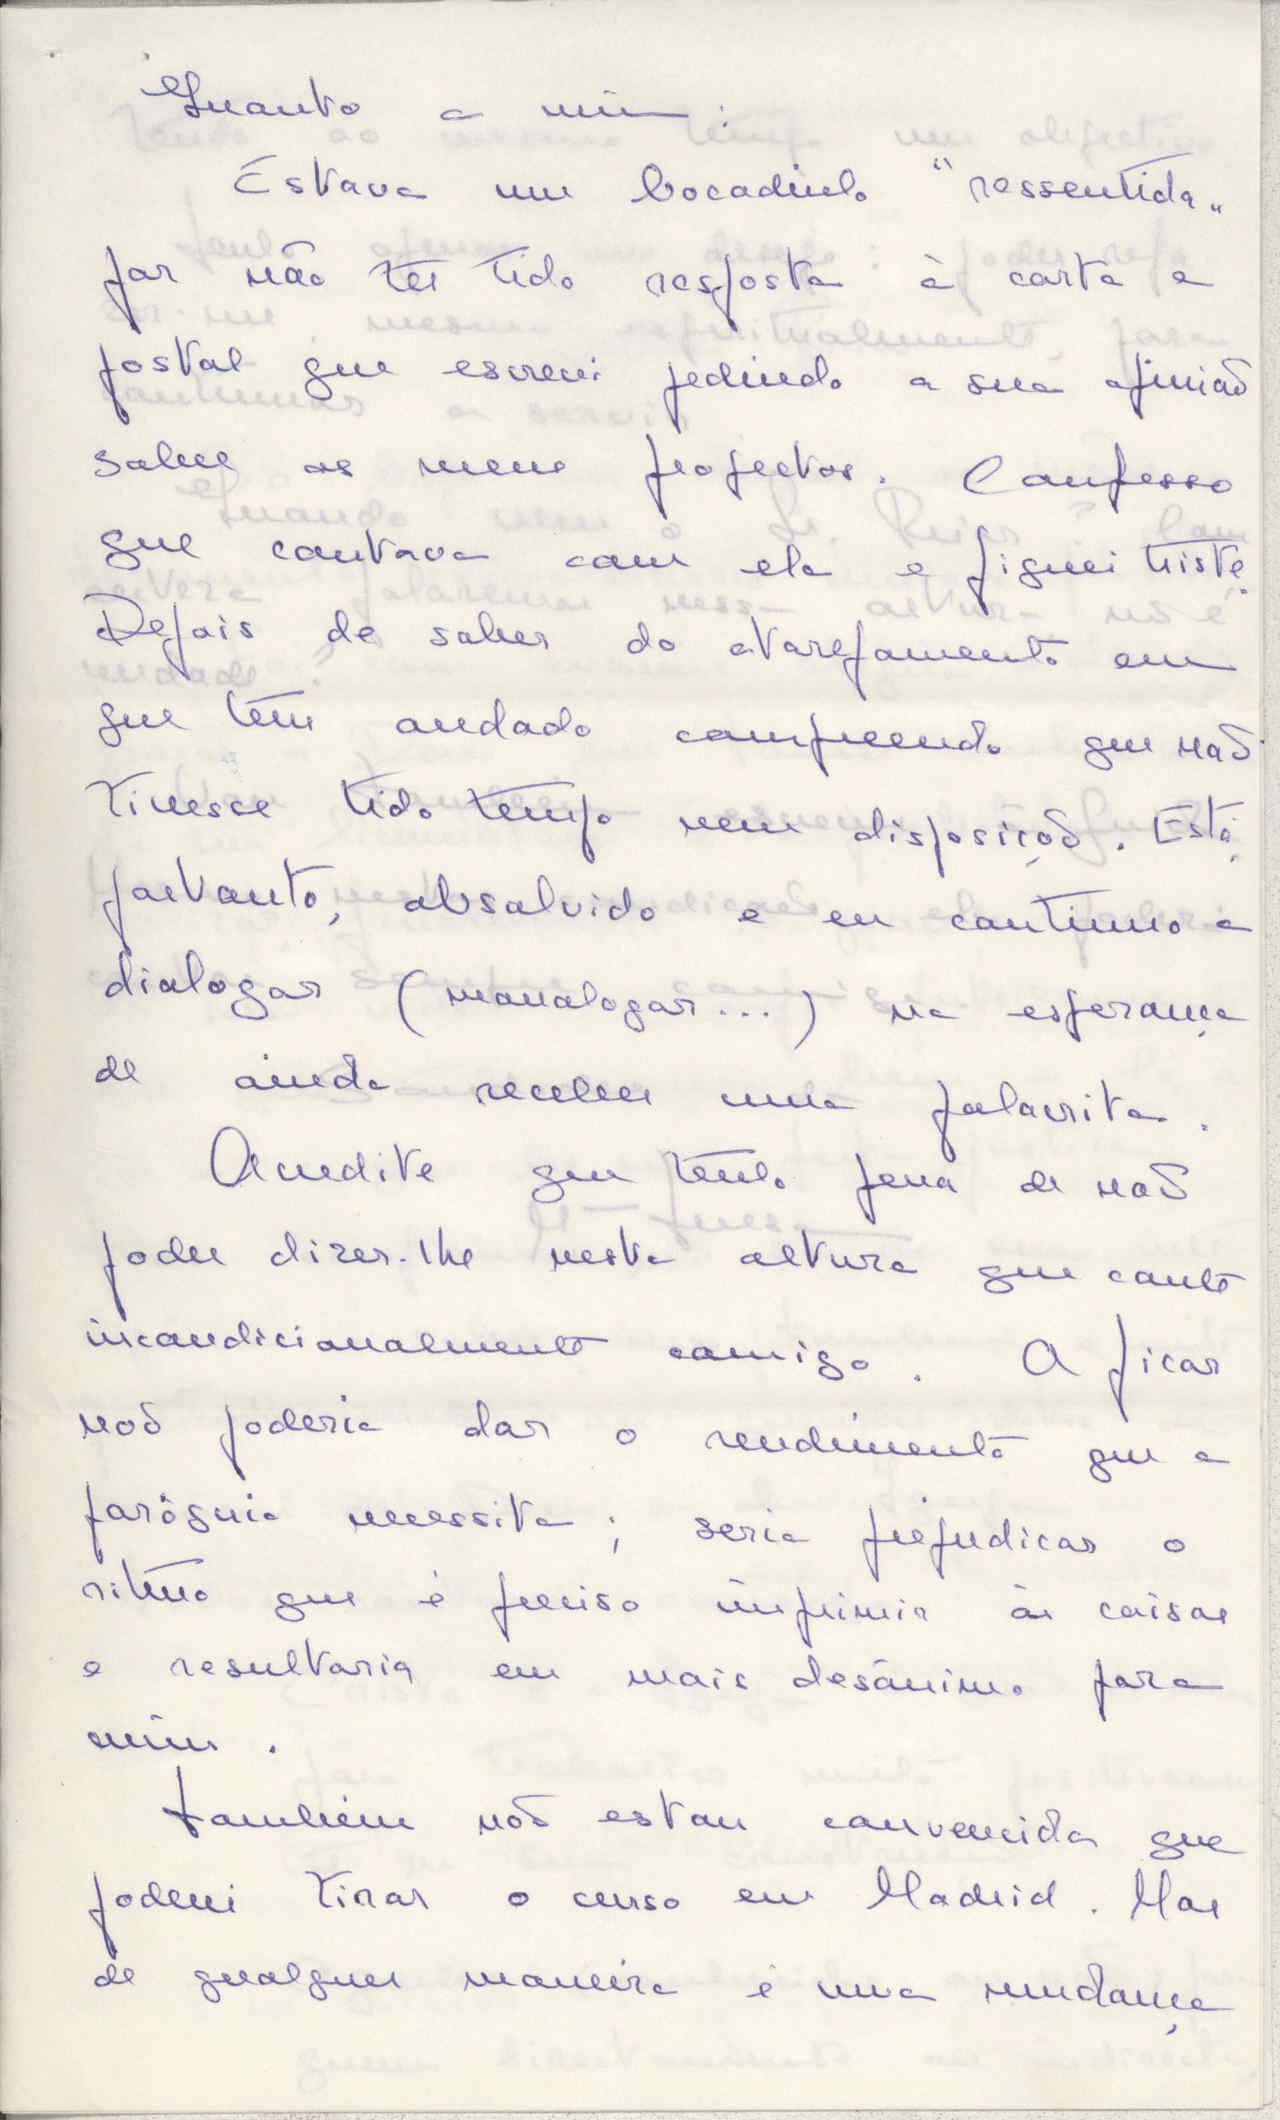 Quanto a mim:
Estava um bocadinho "ressentida"
por não ter tido resposta à carta e
postal que escrevi pedindo a sua opinião
sobre os meus projectos. Confesso
que contava com ela e fiquei triste.
Depois de saber do atarefamento em
que tem andado compreendo que não
tivesse tido tempo nem disposição. Está,
portanto, absolvido e eu continuo a
dialogar (monologar...) na esperança
de ainda receber uma palavrita.
Acredite que tenho pena de não
poder dizer-lhe nesta altura que conte
incondicionalmente comigo. A ficar
não poderia dar o rendimento que a
paróquia necessita; seria prejudicar o
ritmo que é preciso imprimir às coisas
e resultaria em mais desânimo para
mim.
Também não estou convencida que
poderei tirar o curso em Madrid. Mas
de qualquer maneira é uma mudança